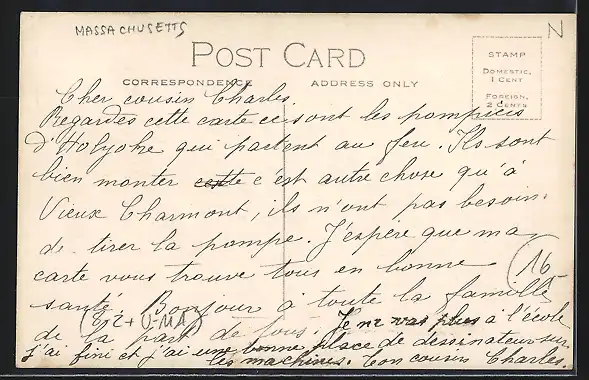 MASSACHUSETTS
N
POST CARD
CORRESPONDENCE
ADDRESS ONLY
STAMP
DOMESTIC,
1 CENT
FOREIGN,
2 CENTS
Cher cousin Charles.
Regardes cette carte ce sont les pompiers
d'Holyoke qui partent au feu. Ils sont
bien monter cette c'est autre chose qu'à
Vieux Charmont, ils n'ont pas besoin.
de tirer la pompe. J'espère que ma
carte vous trouve tous en bonne
16
santé. Bonjour à toute la famille
de la part de tous. Je ne vas plus à l'école
j'ai fini et j'ai une bonne place de dessinateur sur
les machines. Ton cousin Charles.